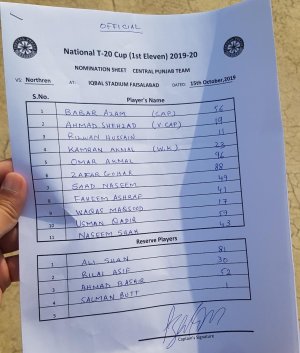 OFFICIAL
National T-20 Cup (1st Eleven) 2019-20
NOMINATION SHEET CENTRAL PUNJAB TEAM
VS: Northren AT: IQBAL STADIUM FAISALABAD DATED: 15th October,2019
S.No. Player's Name
1 BABAR AZAM (CAP) 56
2 AHMAD SHEHZAD (V.CAP) 19
3 RIZWAN HUSSAIN 11
4 KAMRAN AKMAL (W.K) 23
5 OMAR AKMAL 96
6 ZAFAR GOHAR 88
7 SAAD NASEEM 49
8 FAHEEM ASHRAF 41
9 WAQAS MAQSOOD 17
10 USMAN QADIR 59
11 NASEEM SHAH 43
Reserve Players
1 ALI SHAN 81
2 BILAL ASIF 30
3 AHMAD BASHIR 52
4 SALMAN BUTT 1
5
Captain's Signature